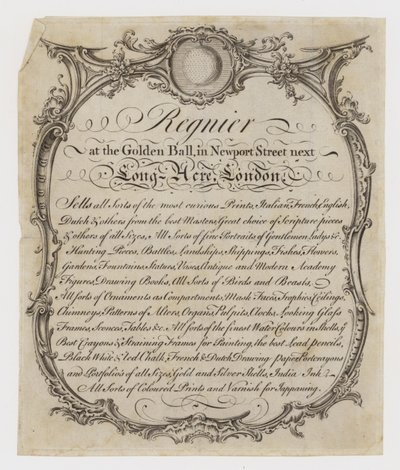 Regnier
at the Golden Ball, in Newport Street next
Long-Acre, London,
Sells all Sorts of the most curious Prints, Italian, French, English,
Dutch & others from the best Masters, Great choice of Scripture pieces
& others of all Sizes, All Sorts of fine Portraits of Gentlemen, Ladys &c
Hunting Pieces, Battles, Landskips, Shippings, Fishes, Flowers,
Gardens, Fountains, Statues, Vases, Antique and Modern Academy
Figures, Drawing Books, All Sorts of Birds and Beasts,
All Sorts of Ornaments as Compartments, Mask Faces, Trophies, Ceilings,
Chimneys, Patterns of Alters, Organs, Pulpits, Clocks, Looking Glass
Frames, Sconces, Tables &c. All Sorts of the finest Water Colours in Shells, ye
Best Crayons & Straining Frames for Painting, the best Lead pencils,
Black White & Red Chalk, French & Dutch Drawing paper, Portcrayons
and Portfolio's of all Sizes, Gold and Silver Shells, India Ink &
All Sorts of Coloured Prints and Varnish for Jappaning.